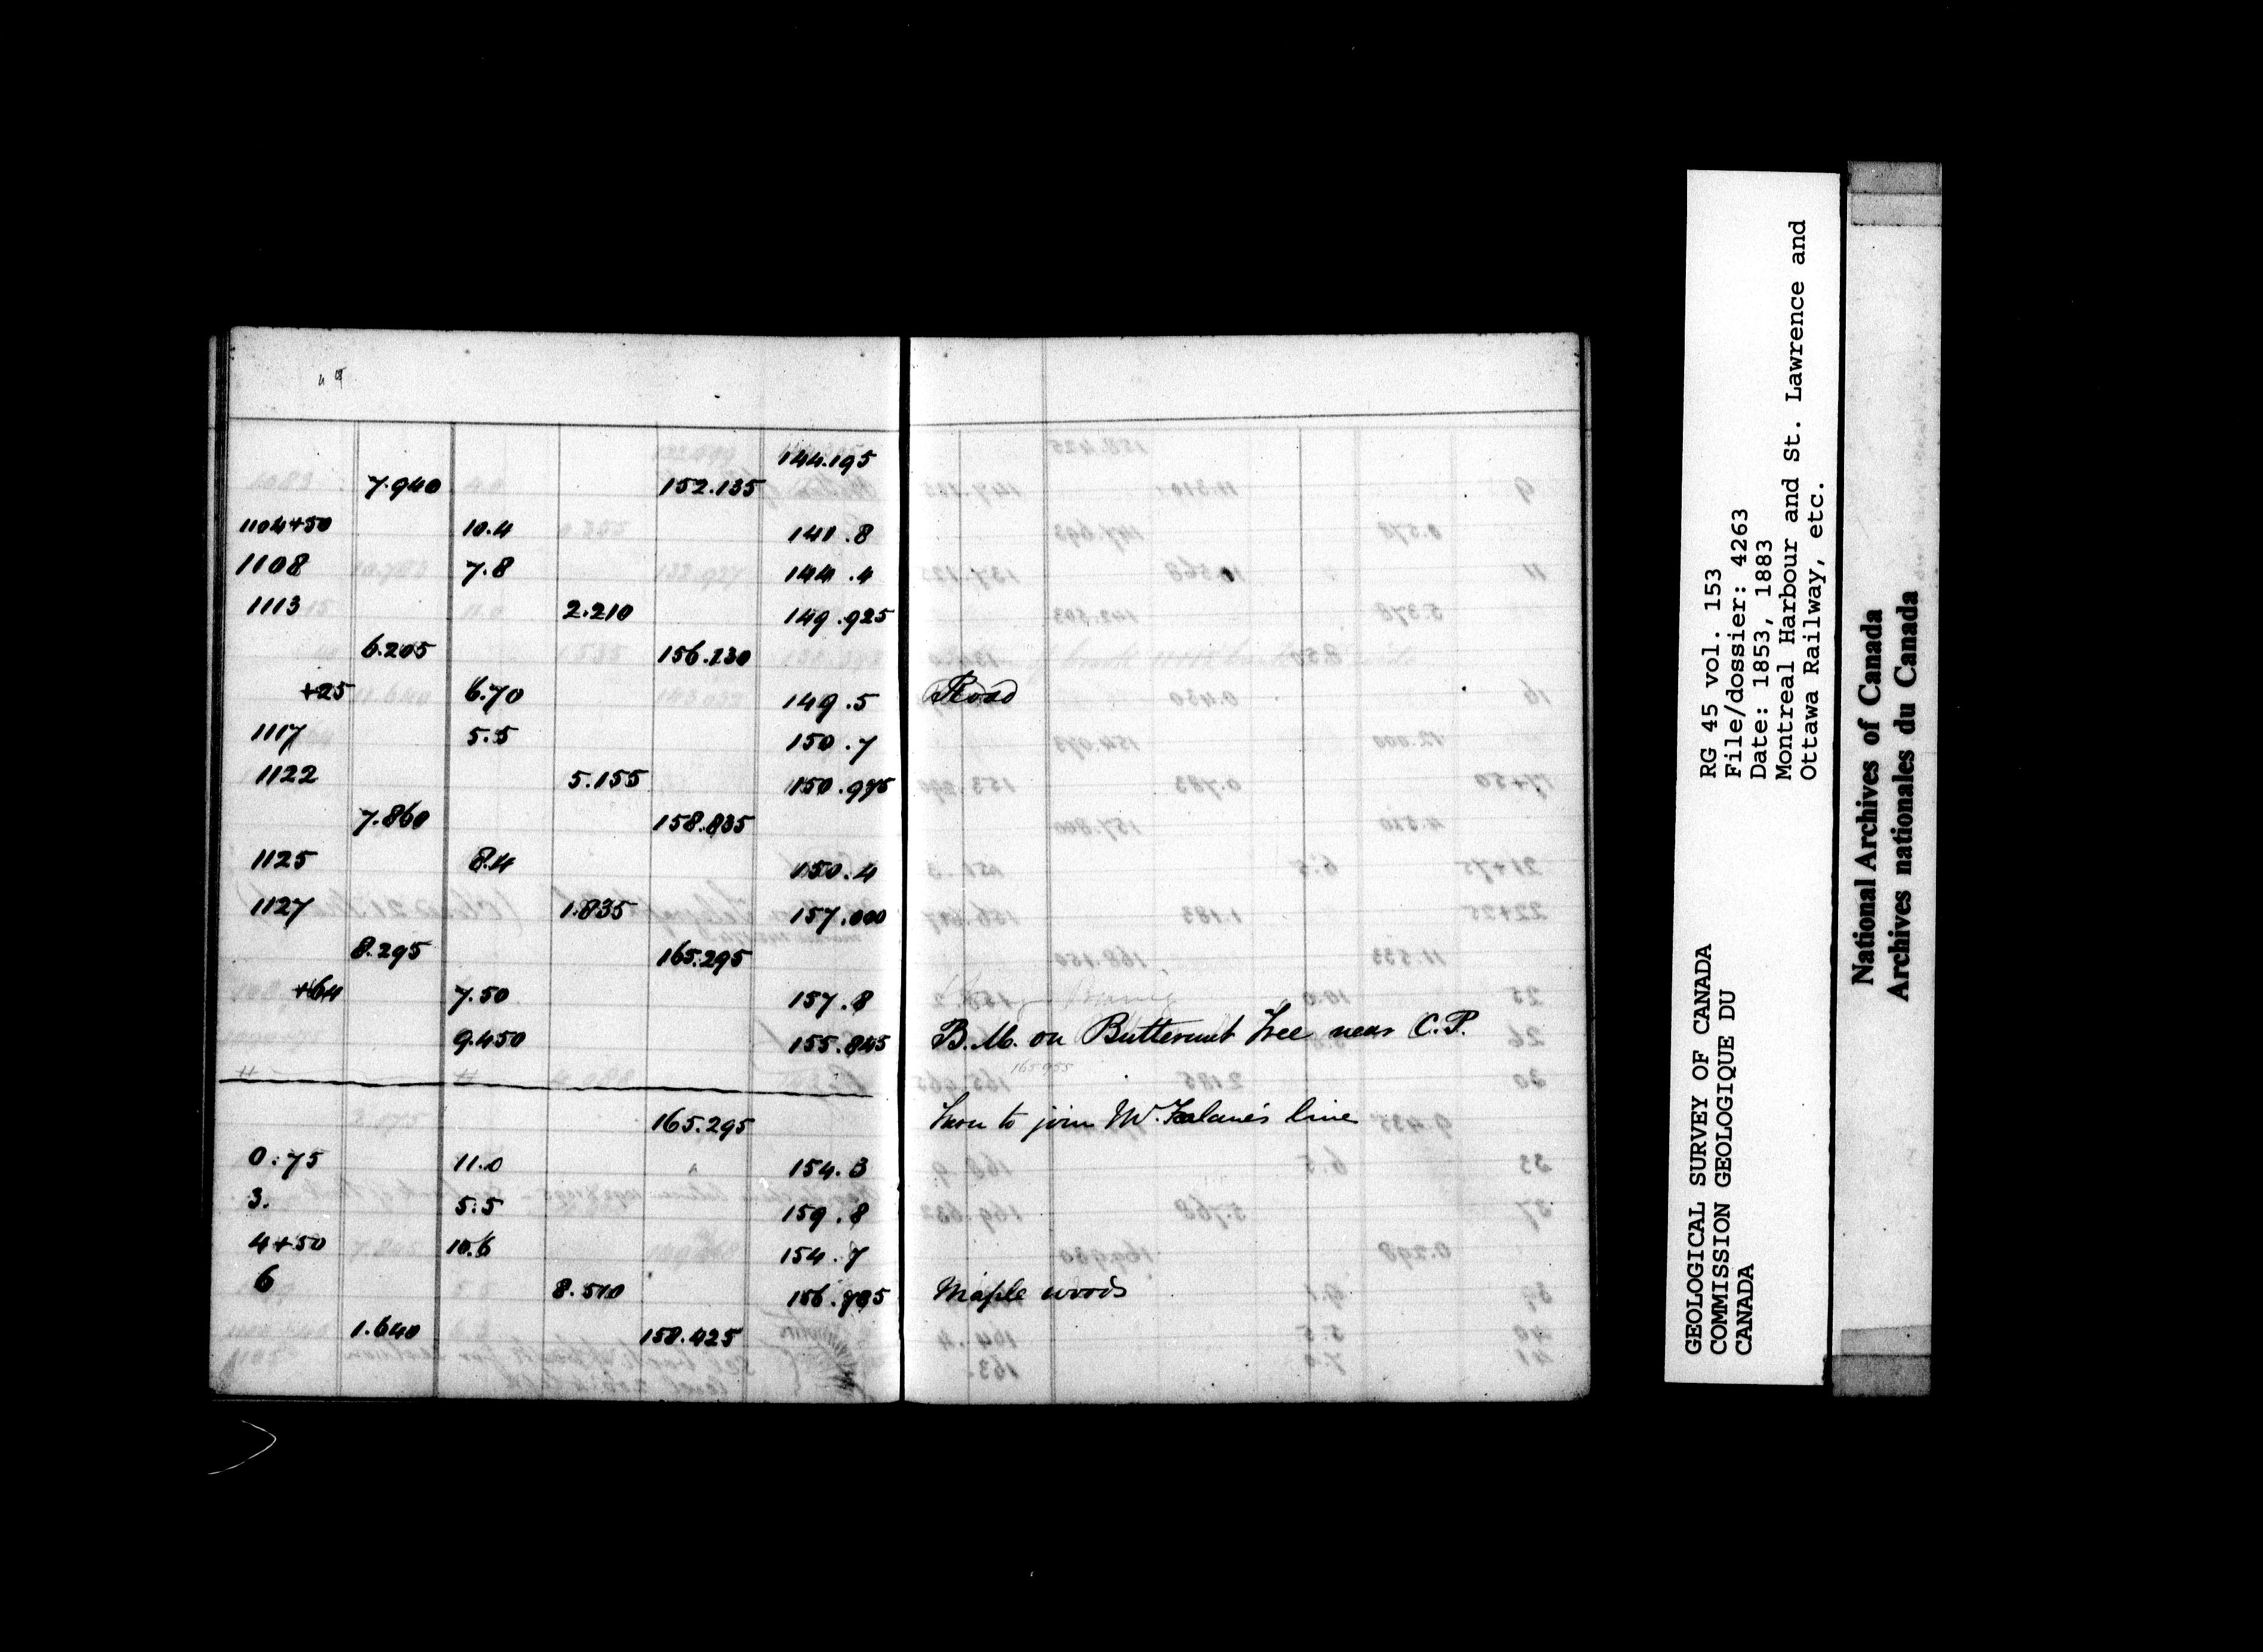 144.195
7.940 152.135
1104+50 10.4 141.8
1108 7.8 144.4
1113 2.210 149.925
6.205 156.130
+25 6.70 149.5 Road
1117 5.5 150.7
1122 5.155 150.975
7.860 158.835
1125 8.4 150.4
1127 1.835 157.000
8.295 165.295
+64 7.50 157.8
9.450 155.845 B.M. on Butternut Tree near C.P.
165.295 to join line
0:75 11.0 154.3
3. 5.5 159.8
4+50 10.6 154.7
6 8.510 156.785 Maple woods
1.640 158.425
GEOLOGICAL SURVEY OF CANADA
COMMISSION GEOLOGIQUE DU
CANADA
RG 45 vol. 153
File/dossier: 4263
Date: 1853, 1883
Montreal Harbour and St. Lawrence and
Ottawa Railway, etc.
National Archives of Canada
Archives nationales du Canada